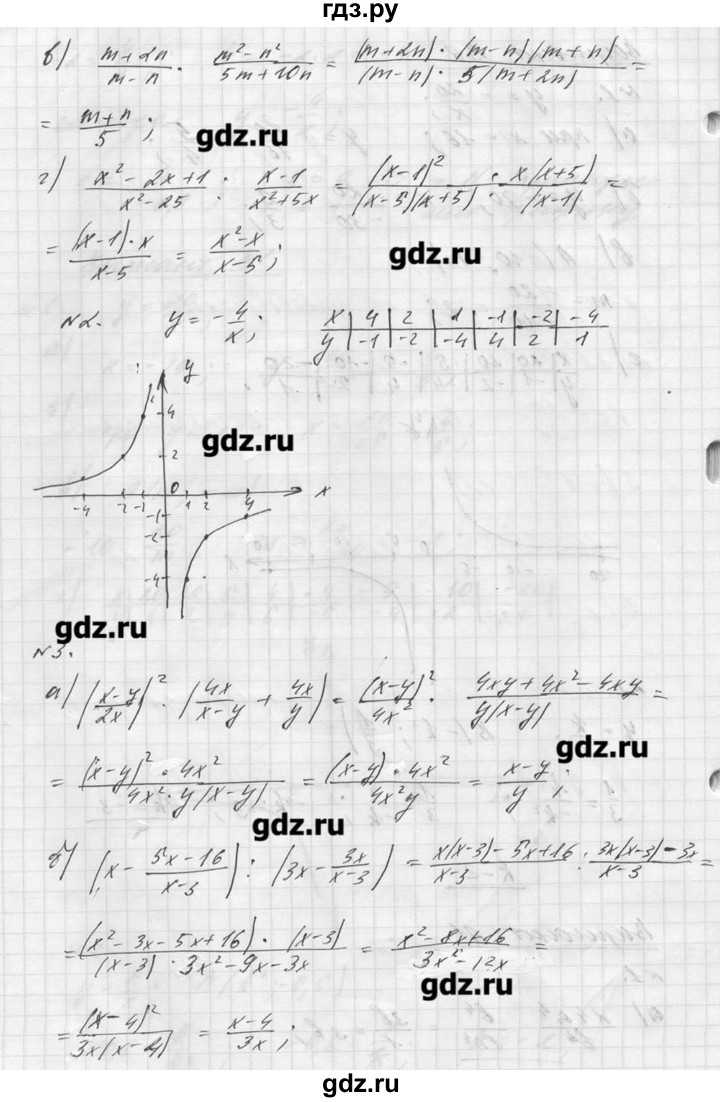 гдз.ру
в) (m+2n)/(m-n) · (m²-n²)/(5m+10n) = ((m+2n)·(m-n)(m+n))/((m-n)·5(m+2n)) =
= (m+n)/5;
gdz.ru
г) (x²-2x+1)/(x²-25) : (x-1)/(x²+5x) = (x-1)²/((x-5)(x+5)) · x(x+5)/(x-1) =
= ((x-1)·x)/(x-5) = (x²-x)/(x-5);
gdz.ru
N2. y = -4/x;
x | 4 | 2 | 1 | -1 | -2 | -4
y | -1 | -2 | -4 | 4 | 2 | 1
y
4
gdz.ru
2
0 x
-4 -2 -1 1 2 4
-1
-2
-4
gdz.ru
N3.
а) ((x-y)/2x)² · (4x/(x-y) + 4x/y) = (x-y)²/4x² · (4xy+4x²-4xy)/(y(x-y)) =
gdz.ru
= ((x-y)²·4x²)/(4x²·y(x-y)) = ((x-y)·4x²)/(4x²y) = (x-y)/y;
gdz.ru
б) (x - (5x-16)/(x-3)) : (3x - 3x/(x-3)) = (x(x-3)-5x+16)/(x-3) : (3x(x-3)-3x)/(x-3) =
= ((x²-3x-5x+16)·(x-3))/((x-3)·3x²-9x-3x) = (x²-8x+16)/(3x²-12x) =
gdz.ru
= (x-4)²/(3x(x-4)) = (x-4)/3x;
gdz.ru